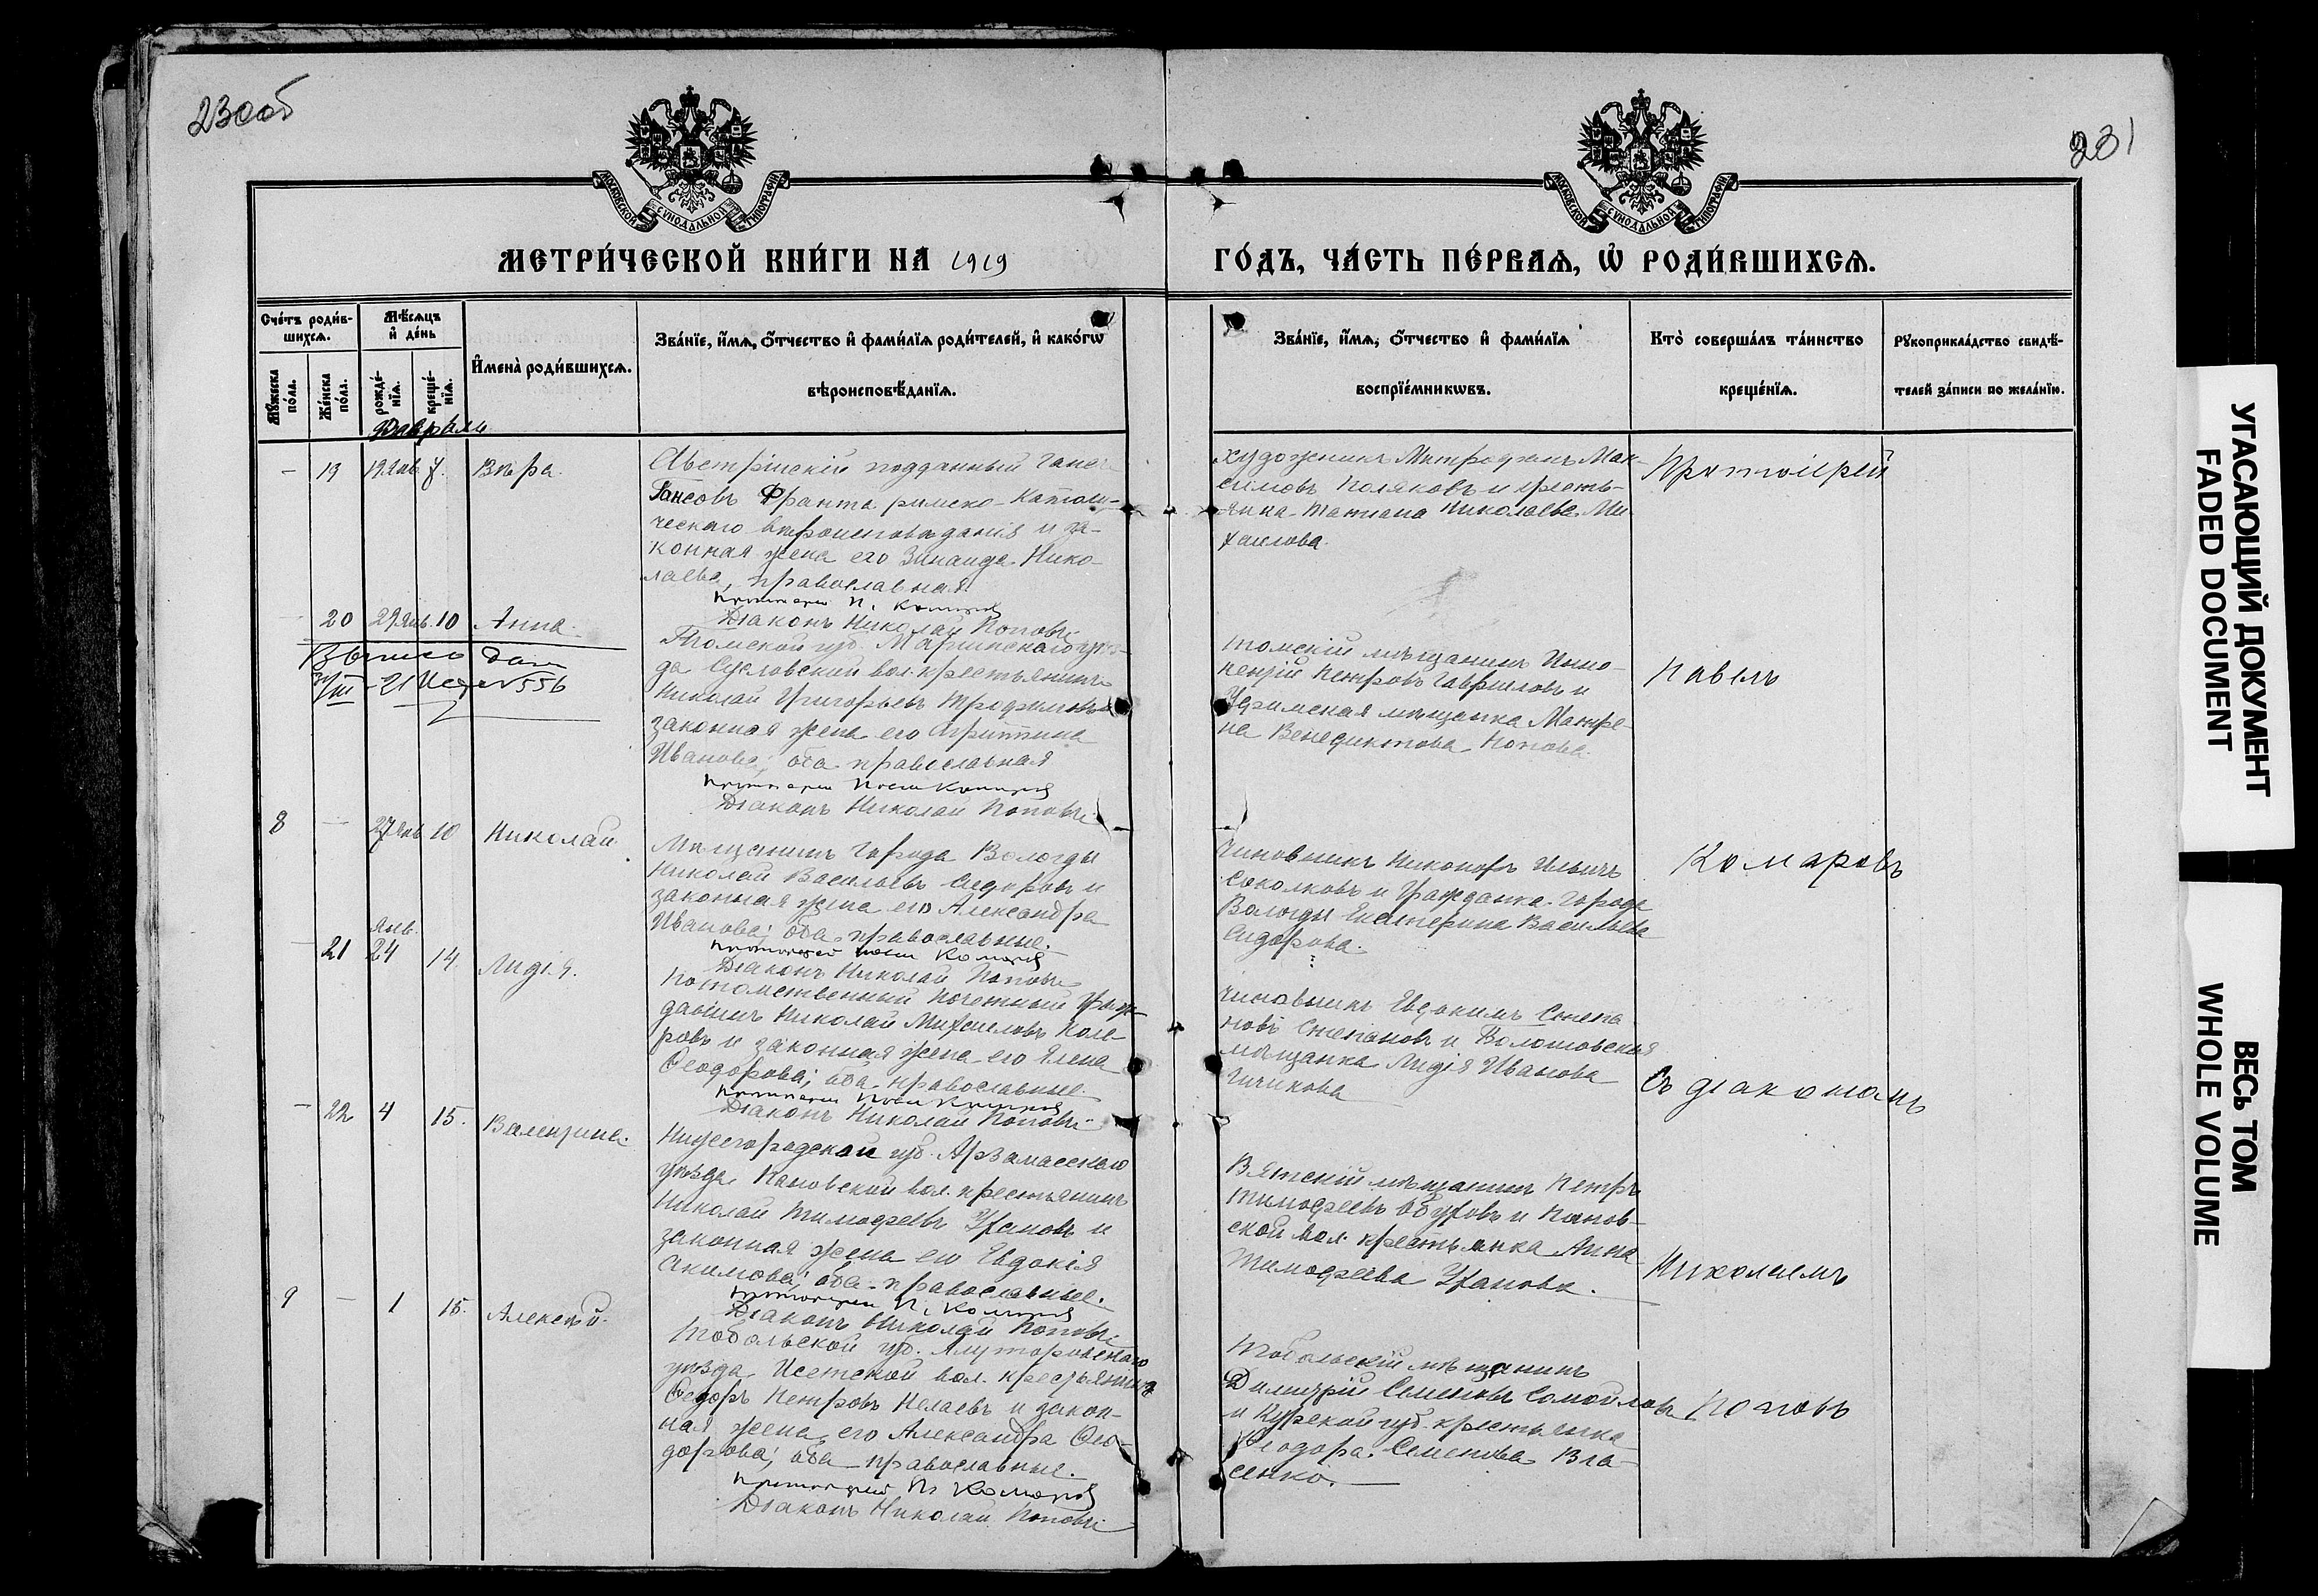 230об
231
МОСКОВСКОЙ СѴНОДАЛЬНОЙ ТИПОГРАФІИ
МОСКОВСКОЙ СѴНОДАЛЬНОЙ ТИПОГРАФІИ
МЕТРИ́ЧЕСКОЙ КНИ́ГИ НА 1919
ГО́ДЪ, ЧА́СТЬ ПЕ́РВАѦ, Ѡ҆ РОДИ́ВШИХСѦ.
Сче́тъ роди́в-
шихсѧ.
Мѣ́сѧцъ
и҆ де́нь
Мꙋ́жеска
по́ла.
Же́нска
по́ла.
рожде́-
нїѧ.
креще́-
нїѧ.
И҆мена̀ роди́вшихсѧ.
Зва́нїе, и҆́мѧ, ѻ҆́тчество и҆ фами́лїѧ роди́телей, и҆ како́гѡ
вѣроисповѣ́данїѧ.
Зва́нїе, и҆́мѧ, ѻ҆́тчество и҆ фами́лїѧ
воспрїе́мникѡвъ.
Кто̀ соверша́лъ та́инство
креще́нїѧ.
Рꙋкоприкла́дство свидѣ́-
телей за́писи по жела́нїю.
Февраль
- 19 19 янв 7. Вѣра.
Австрійскій подданный Ганс
Гансовъ Франта римско-католи-
ческаго вѣроисповѣданія и за-
конная жена его Зинаида Нико-
лаева, православная
Протоіерей П. Комаровъ
Діаконъ Николай Поповъ
художникъ Митрофанъ Мак-
симовъ Поляковъ и кресть-
янка Татиана Николаева Ми-
хайлова.
Протоіерей
- 20 29 янв. 10 Анна.
Выпись дана
21 №556
Томской губ. Маріинскаго уѣз-
да Сусловской вол. крестьянинъ
Николай Григорьевъ Трофимовъ и
законная жена его Агриппина
Иванова; оба православная
Протоіерей Комаровъ
Діаконъ Николай Поповъ
томскій мѣщанинъ Инно-
кентій Петровъ Гавриловъ и
Уфимская мѣщанка Матре-
на Венедиктова Попова.
Павелъ
8 - 27 янв 10 Николай.
Мѣщанинъ города Вологды
Николай Васильевъ Сидоровъ и
законная жена его Александра
Иванова; оба православные.
Протоіерей Комаровъ
Діаконъ Николай Поповъ
Чиновникъ Никоноръ Ильичъ
Соколковъ и гражданка города
Вологды Екатерина Васильева
Сидорова.
Комаровъ
- 21 янв. 24 14 Лидія.
Потомственный почетный граж-
данинъ Николай Михаиловъ
ровъ и законная жена его Елена
Ѳеодорова; оба православные.
Протоіерей Комаровъ
Діаконъ Николай Поповъ
Чиновникъ Евдокимъ Степа
новъ Степановъ и
мѣщанка Лидія Иванова
Чичикова
съ діакономъ
- 22 4 15. Валентина.
Нижегородской губ. Арзамасскаго
уѣзда Пановской вол. крестьянинъ
Николай Тимофеевъ Ухановъ и
законная жена его Евдокія
Акимова; оба православные.
Протоіерей П. Комаровъ
Діаконъ Николай Поповъ
Вятскій мѣщанинъ Петръ
Тимофеевъ Обуховъ и Панов-
ской вол. крестьянка Анна
Тимофеева Уханова.
Николаемъ
9 - 1 15. Алексѣй.
Тобольской губ. Ялуторовскаго
уѣзда Исетской вол. крестьянинъ
Ѳедоръ Петровъ Нелаевъ и закон-
ная жена его Александра Ѳео-
дорова; оба православные.
Протоіерей П. Комаровъ
Діаконъ Николай Поповъ
Тобольскій мѣщанинъ
Димитрій Семеновъ Самойловъ
и Курской губ. крестьянка
Ѳеодора Семенова Вла-
сенко.
Поповъ
УГАСАЮЩИЙ ДОКУМЕНТ
FADED DOCUMENT
ВЕСЬ ТОМ
WHOLE VOLUME